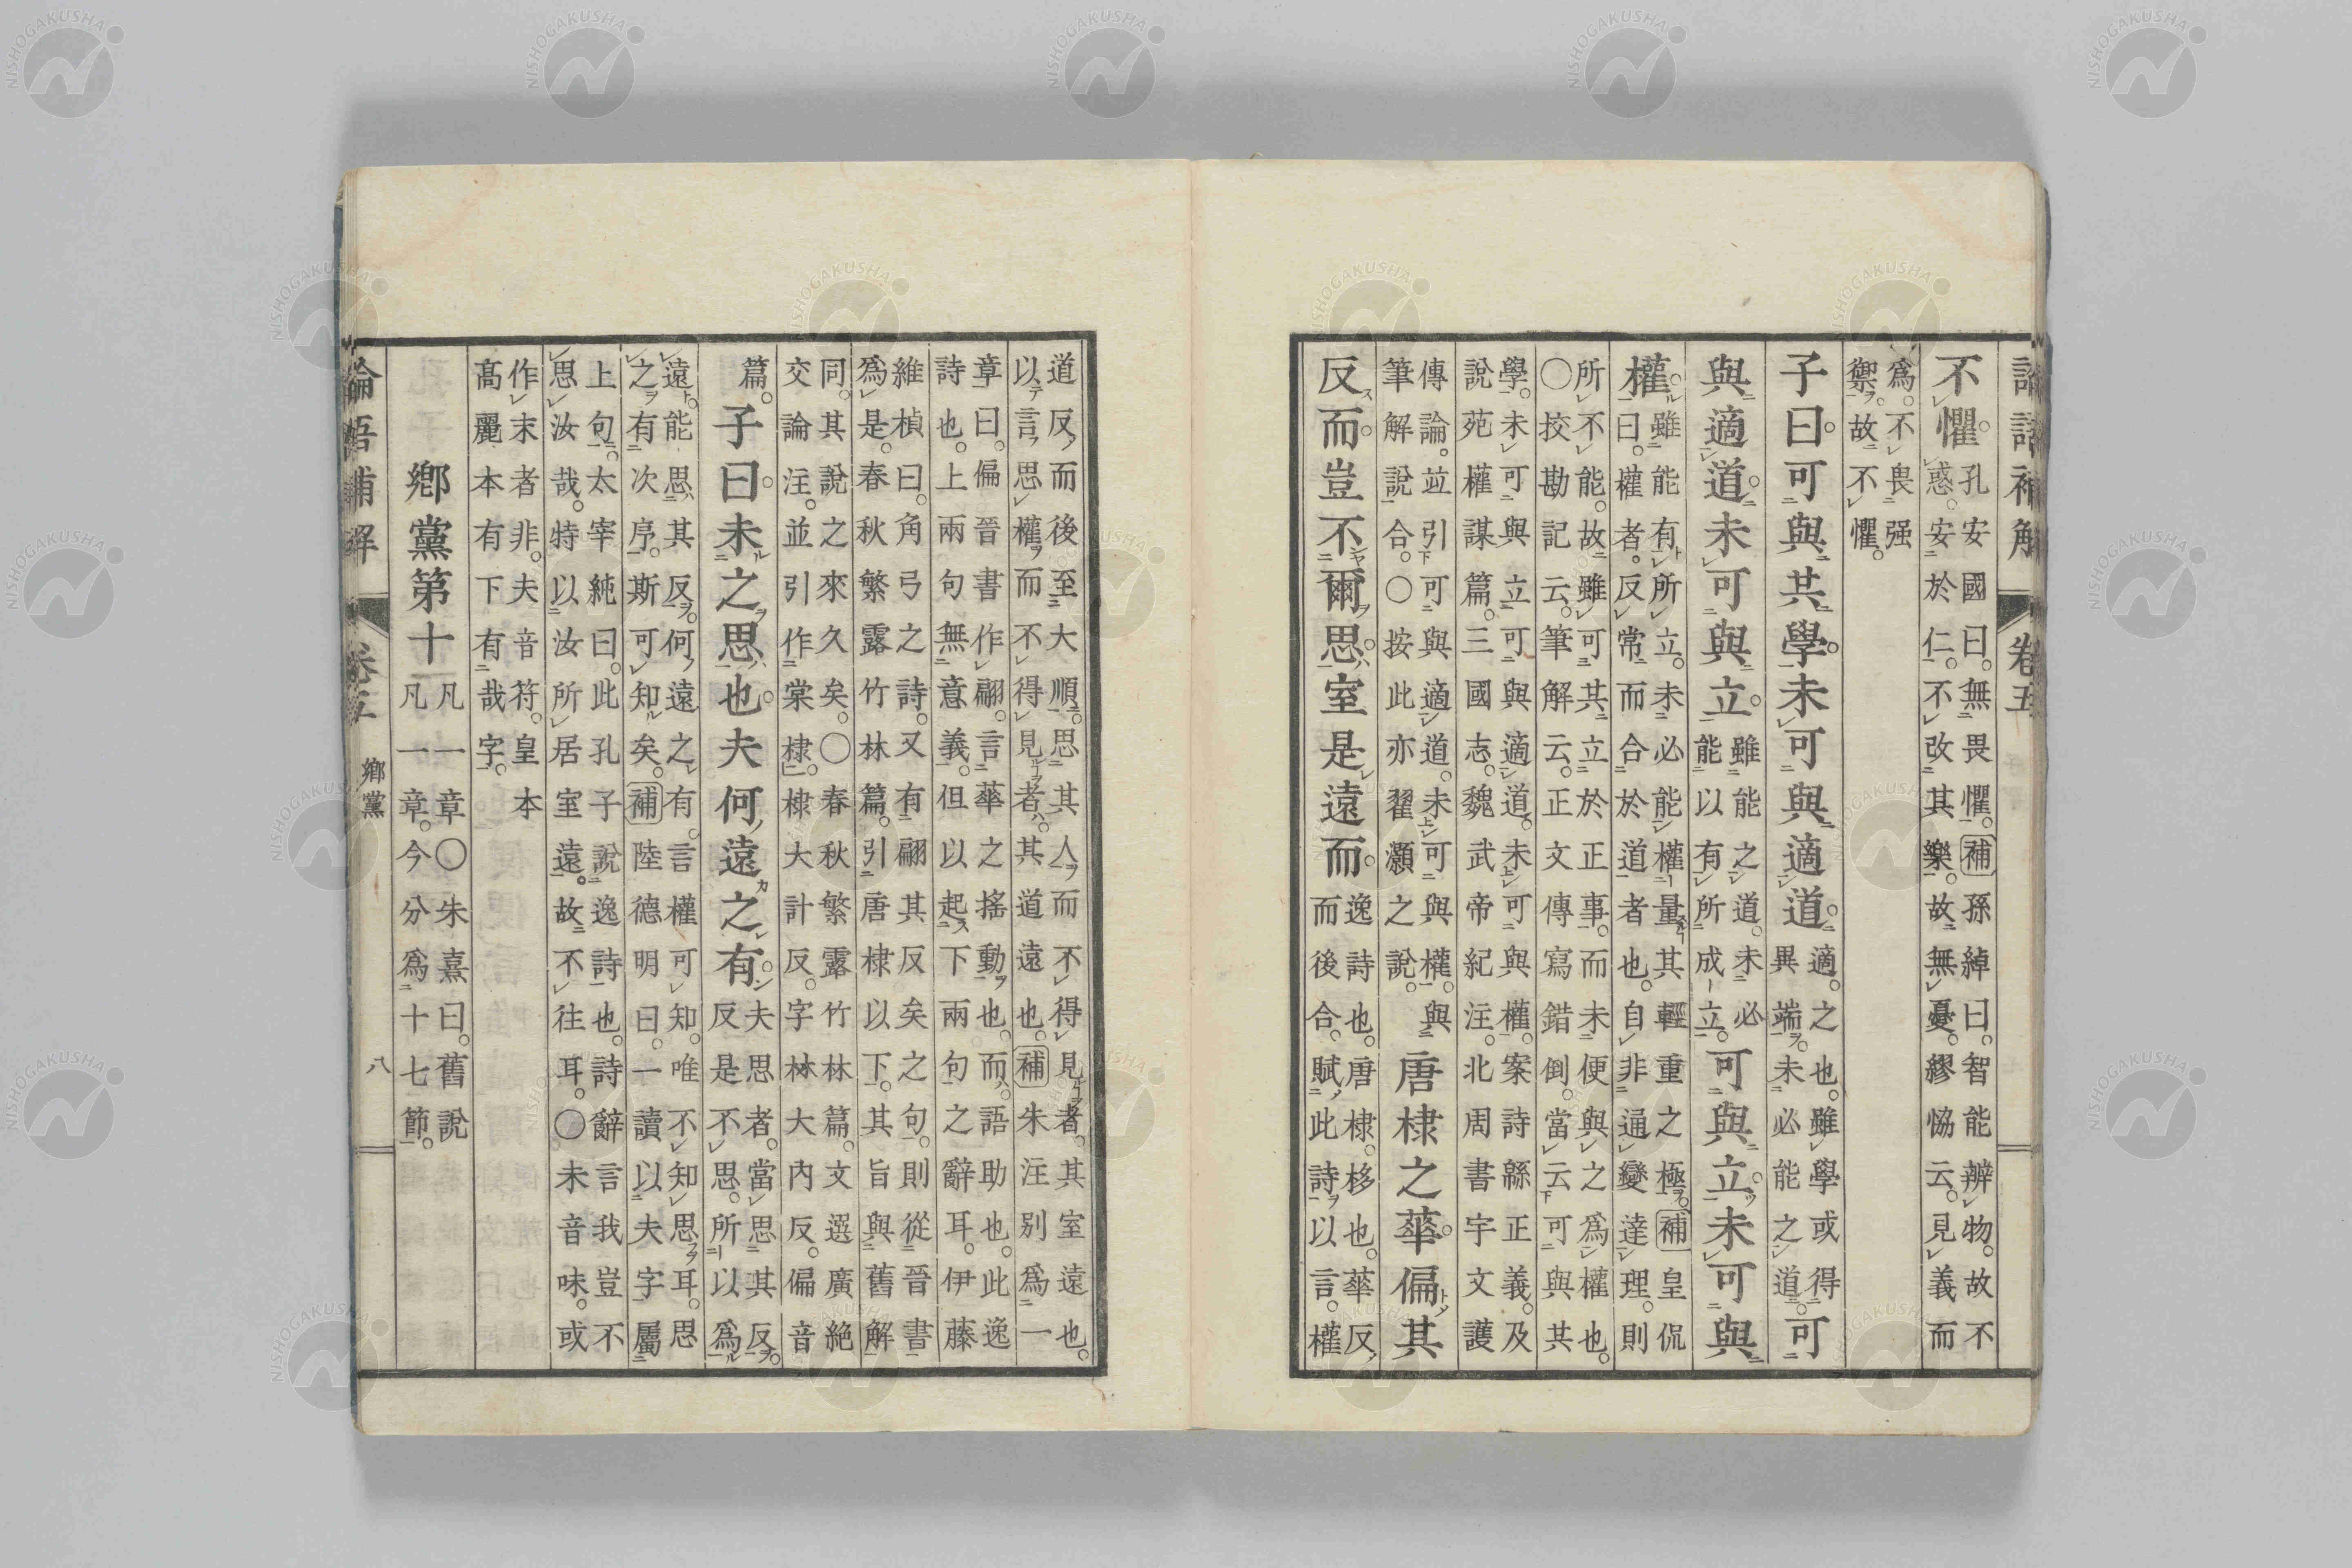 論語補解 卷五
不懼。孔安國曰。無畏懼。補孫綽曰。智能辨物。故不
惑。安於仁。不改其樂。故無憂。繆恊云。見義而
爲。不畏强
禦。故不懼。
子曰。可與共學。未可與適道。適。之也。雖學或得
異端。未必能之道。可
與適道。未可與立。雖能之道。未必
能以有所成立。可與立。未可與
權。雖能有所立。未必能權量其輕重之極。補皇侃
曰。權者。反常而合於道者也。自非通變達理。則
所不能。故雖可共立於正事。而未便與之爲權也。
〇挍勘記云。筆解云。正文傳寫錯倒。當云可與共
學。未可與立。可與適道。未可與權。案詩緜正義。及
說苑權謀篇。三國志。魏武帝紀注。北周書宇文護
傳論。竝引可與適道。未可與權。與
筆解說合。〇按此亦翟灝之說。唐棣之華。偏其
反而。豈不爾思。室是遠而。逸詩也。唐棣。栘也。華反
而後合。賦此詩以言。權
道反而後至大順。思其人而不得見者。其室遠也。
以言思權而不得見者。其道遠也。補朱注别爲一
章曰。偏晉書作翩。言華之搖動也。而語助也。此逸
詩也。上兩句無意義。但以起下兩句之辭耳。伊藤
維楨曰。角弓之詩。又有翩其反矣之句。則從晉書
爲是。春秋繁露竹林篇。引唐棣以下。其旨與舊解
同。其說之來久矣。〇春秋繁露竹林篇。文選廣絶
交論注。並引作棠棣。棣大計反。字林大內反。偏音
篇。子曰。未之思也。夫何遠之有。夫思者。當思其反。
反是不思。所以爲
遠。能思其反。何遠之有。言權可知。唯不知思耳。思
之有次序。斯可知矣。補陸德明曰。一讀以夫字屬
上句。太宰純曰。此孔子說逸詩也。詩辭言我豈不
思汝哉。特以汝所居室遠。故不往耳。〇未音味。或
作末者非。夫音符。皇本
髙麗本有下有哉字。
鄉黨第十凡一章〇朱熹曰。舊說
凡一章。今分爲十七節。
論語補解 卷五 鄉黨 八
NISHOGAKUSHA